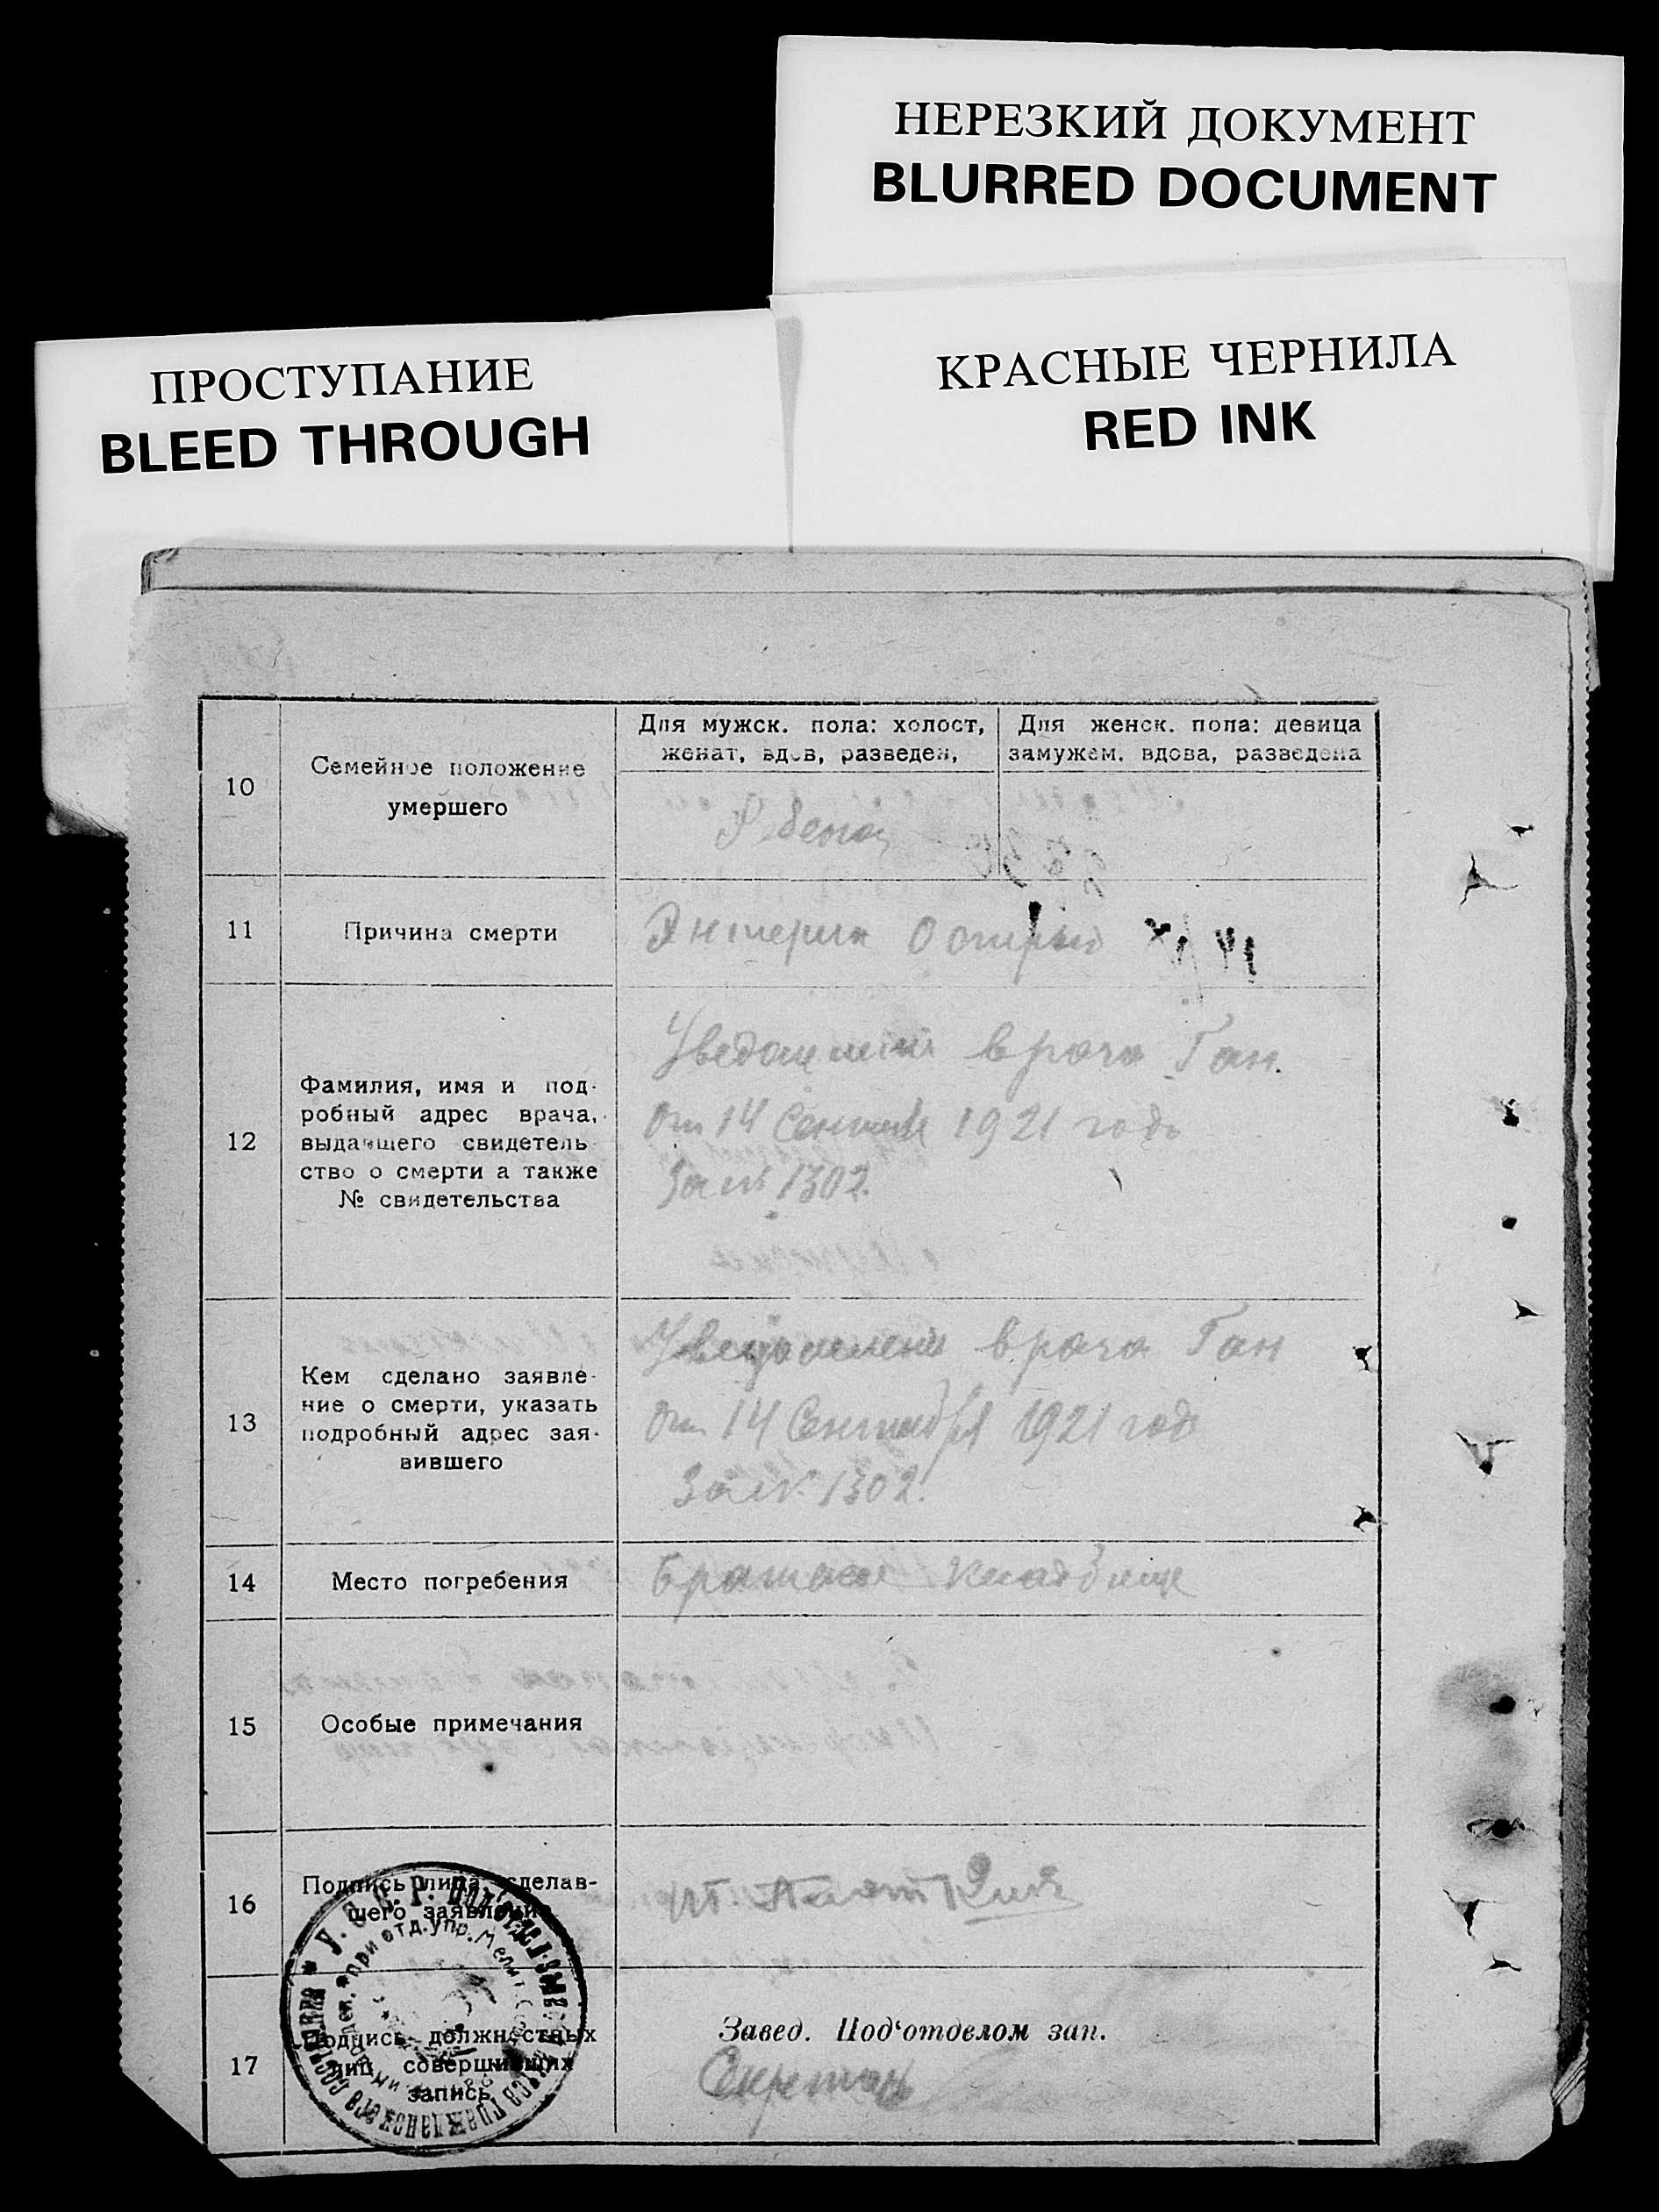 НЕРЕЗКИЙ ДОКУМЕНТ
BLURRED DOCUMENT
ПРОСТУПАНИЕ
BLEED THROUGH
КРАСНЫЕ ЧЕРНИЛА
RED INK
10
Семейное положение
умершего
Для мужск. пола: холост,
женат, вдов, разведен,
Для женск. пола: девица
замужем. вдова, разведена
11
Причина смерти
Энтерит Острый
12
Фамилия, имя и под-
робный адрес врача,
выдавшего свидетель-
ство о смерти а также
№ свидетельства
врача Ган.
От 14 1921 года
За № 1302.
13
Кем сделано заявле-
ние о смерти, указать
подробный адрес зая-
вившего
врача Ган
От 14 Сентября 1921 год
За № 1302.
14
Место погребения
Братское кладбище
15
Особые примечания
16
Подпись лица, сделав-
шего заявление
17
Подпись должностных
лиц совершивших
запись
Завед. Под‘отделом зап.
Секретарь